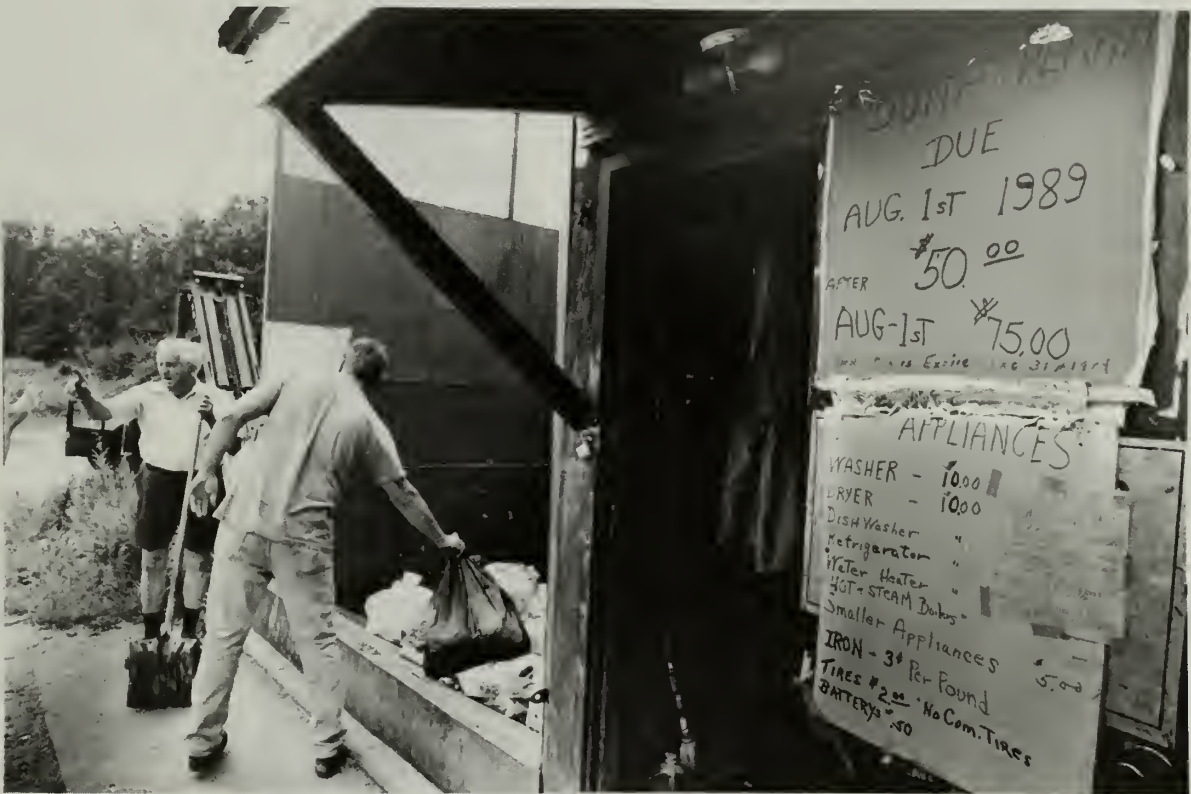 DUMP
DUE
AUG. 1ST 1989
$50.00
AFTER
AUG-1ST $75.00
Expire
APPLIANCES
WASHER - 10.00
DRYER - 10.00
DISHWasher "
Refrigerator "
Water Heater "
HOT-STEAM "
Smaller Appliances 5.00
IRON - 3¢ Per Pound
TIRES $2.00 - No Com. TIRES
BATTERYS .50